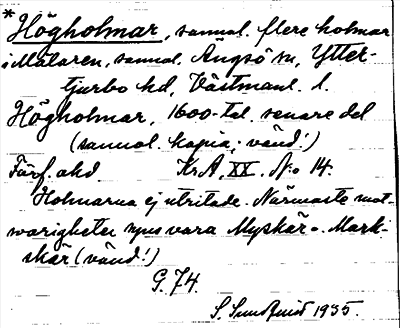 * Högholmar, sannol. flere holmar
i Mälaren, sannol. Ängsö sn, Ytter-
tjurbo hd, Västmanl. l.
Högholmar, 1600-tal. senare del
(sannol. kopia; vänd!)
Förf. okd. Kr.A. XX. N:o 14.
Holmarna ej utritade. Närmaste mot-
svarigheter synes vara Myskär o. Mark-
skär (vänd!)
G. 74.
S. Sundquist 1935.